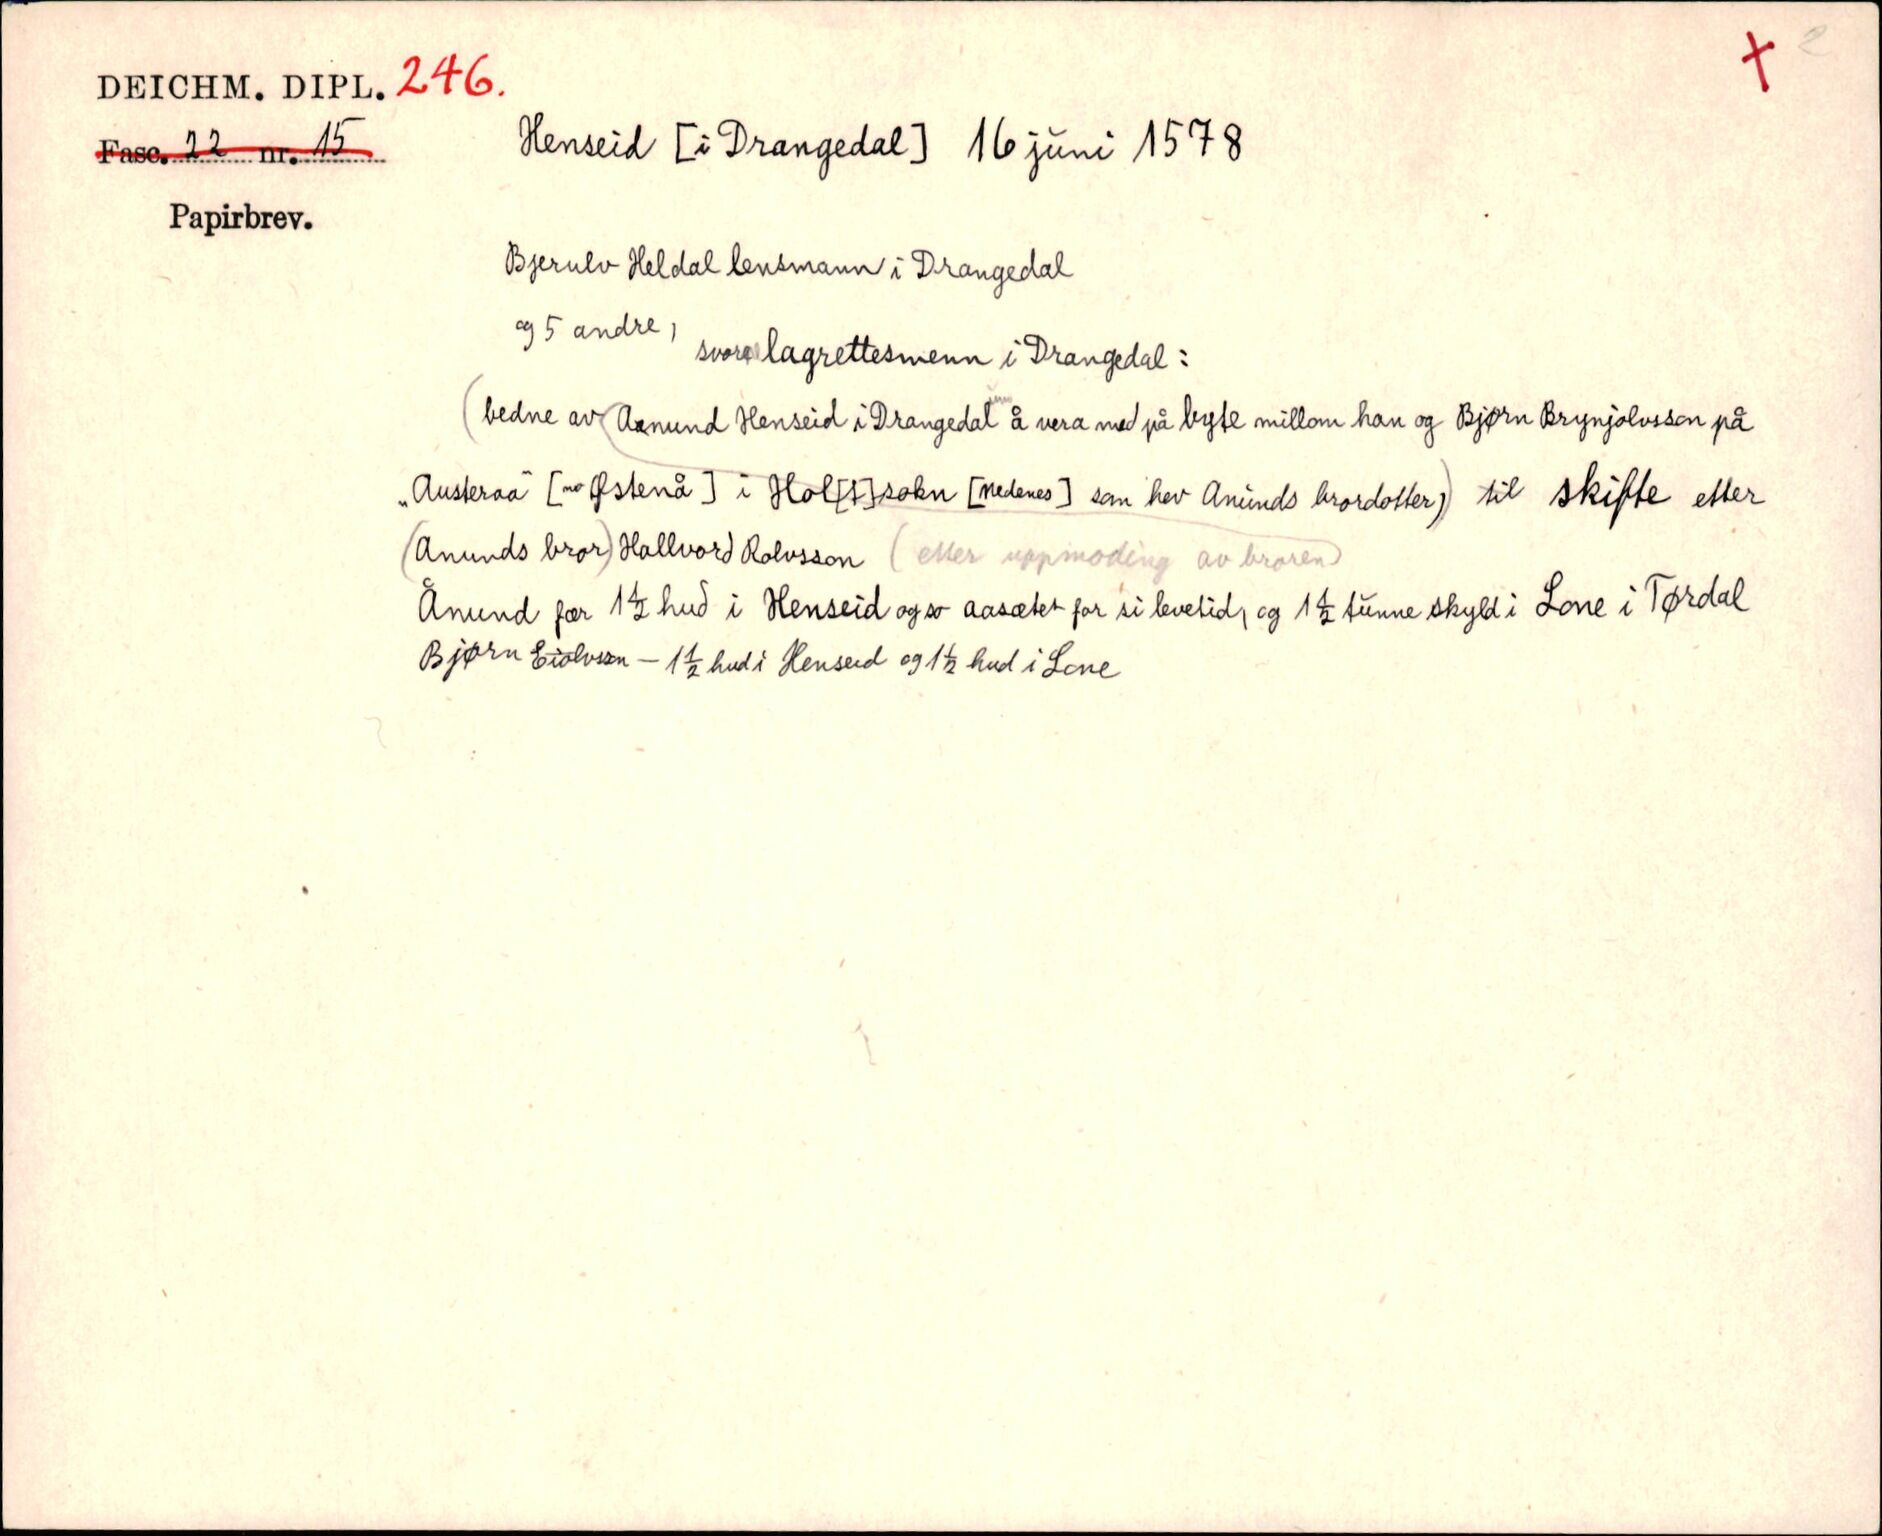 DEICHM. DIPL. 246.
Fasc. 22 nr. 15
Papirbrev.
Henseid [i Drangedal] 16 juni 1578
Bjerulv Heldal lensmann i Drangedal
og 5 andre,
svorne lagrettesmenn i Drangedal:
(bedne av (Aanund Henseid i Drangedal å vera med på byte millom han og Bjørn Brynjolvsson på
"Austeraa" [no Østenå] i Hol[t]sokn [Nedenes] som hev Anunds brordotter) til skifte etter
(Anunds bror) Hallvord Rolvsson (etter uppmoding av broren)
Ånund fær 1½ hud i Henseid og so aasætet for si levetid, og 1½ tunne skyld i Lone i Tørdal
Bjørn Eiolvsson – 1½ hud i Henseid og 1½ hud i Lone